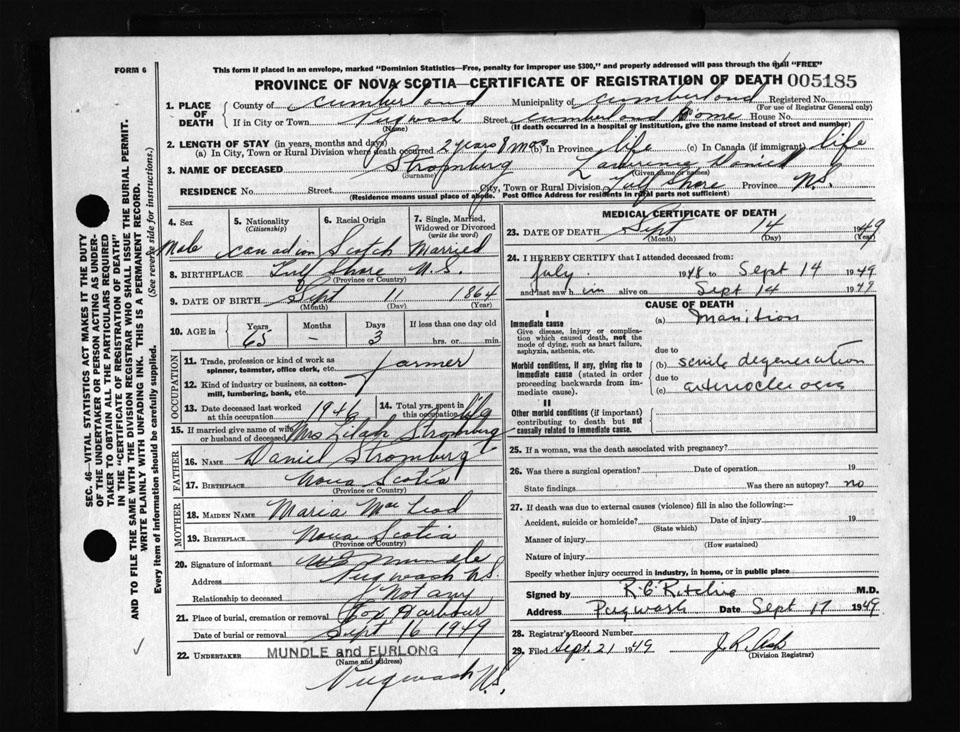 FORM 6
This form if placed in an envelope, marked "Dominion Statistics—Free, penalty for improper use $300," and properly addressed will pass through the mail "FREE"
PROVINCE OF NOVA SCOTIA—CERTIFICATE OF REGISTRATION OF DEATH 005185
1. PLACE OF DEATH County of Cumberland Municipality of Cumberland Registered No.
(For use of Registrar General only)
If in City or Town Pugwash Street Cumberland Home House No.
(Name) (If death occurred in a hospital or institution, give the name instead of street and number)
2. LENGTH OF STAY (in years, months and days)
(a) In City, Town or Rural Division where death occurred 2 years 8 mos (b) In Province life (c) In Canada (if immigrant) life
3. NAME OF DECEASED Stromburg Daniel
(Surname) (Given name or names)
RESIDENCE No. Street City, Town or Rural Division Gulf Shore Province N.S.
(Residence means usual place of abode. Post Office Address for residents in rural parts not sufficient)
4. Sex Male
5. Nationality (Citizenship) Canadian
6. Racial Origin Scotch
7. Single, Married, Widowed or Divorced (write the word) Married
8. BIRTHPLACE Gulf Shore N.S.
(Province or Country)
9. DATE OF BIRTH Sept 11 1864
(Month) (Day) (Year)
10. AGE in Years Months Days If less than one day old
65 — 3 hrs. or min.
OCCUPATION
11. Trade, profession or kind of work as spinner, teamster, office clerk, etc. farmer
12. Kind of industry or business, as cotton-mill, lumbering, bank, etc.
13. Date deceased last worked at this occupation 1946
14. Total yrs. spent in this occupation life
15. If married give name of wife or husband of deceased Mrs Lilah Stromburg
FATHER
16. NAME Daniel Stromberg
17. BIRTHPLACE Nova Scotia
(Province or Country)
MOTHER
18. MAIDEN NAME Maria Mac Leod
19. BIRTHPLACE Nova Scotia
(Province or Country)
20. Signature of informant Mundle
Address Pugwash N.S.
Relationship to deceased Not any
21. Place of burial, cremation or removal Fox Harbour
Date of burial or removal Sept 16 1949
22. UNDERTAKER MUNDLE and FURLONG
(Name and address)
Pugwash N.S.
MEDICAL CERTIFICATE OF DEATH
23. DATE OF DEATH Sept 14 1949
(Month) (Day) (Year)
24. I HEREBY CERTIFY that I attended deceased from:
July 1948 to Sept 14 1949
and last saw him alive on Sept 14 1949
CAUSE OF DEATH
I
Immediate cause
Give disease, injury or complication which caused death, not the mode of dying, such as heart failure, asphyxia, asthenia, etc.
(a) Inanition
due to
Morbid conditions, if any, giving rise to immediate cause (stated in order proceeding backwards from immediate cause).
(b) senile degeneration
due to
(c) arteriosclerosis
II
Other morbid conditions (if important) contributing to death but not causally related to immediate cause.
25. If a woman, was the death associated with pregnancy?
26. Was there a surgical operation? Date of operation 19
State findings Was there an autopsy? no
27. If death was due to external causes (violence) fill in also the following:—
Accident, suicide or homicide? Date of injury 19
(State which)
Manner of injury
(How sustained)
Nature of injury
Specify whether injury occurred in industry, in home, or in public place
Signed by R. G. Ritchie M.D.
Address Pugwash Date Sept 17 1949
28. Registrar's Record Number
29. Filed Sept. 21 1949
(Division Registrar)
SEC. 46—VITAL STATISTICS ACT MAKES IT THE DUTY
OF THE UNDERTAKER OR PERSON ACTING AS UNDER-
TAKER TO OBTAIN ALL THE PARTICULARS REQUIRED
IN THE "CERTIFICATE OF REGISTRATION OF DEATH"
AND TO FILE THE SAME WITH THE DIVISION REGISTRAR WHO SHALL ISSUE THE BURIAL PERMIT.
WRITE PLAINLY WITH UNFADING INK. THIS IS A PERMANENT RECORD.
Every item of information should be carefully supplied. (See reverse side for instructions.)